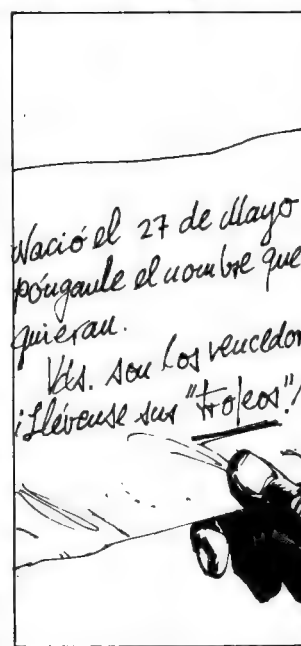 Nació el 27 de Mayo
pónganle el nombre que
quieran.
Vds. son los vencedor
¡Llévense sus "trofeos"!